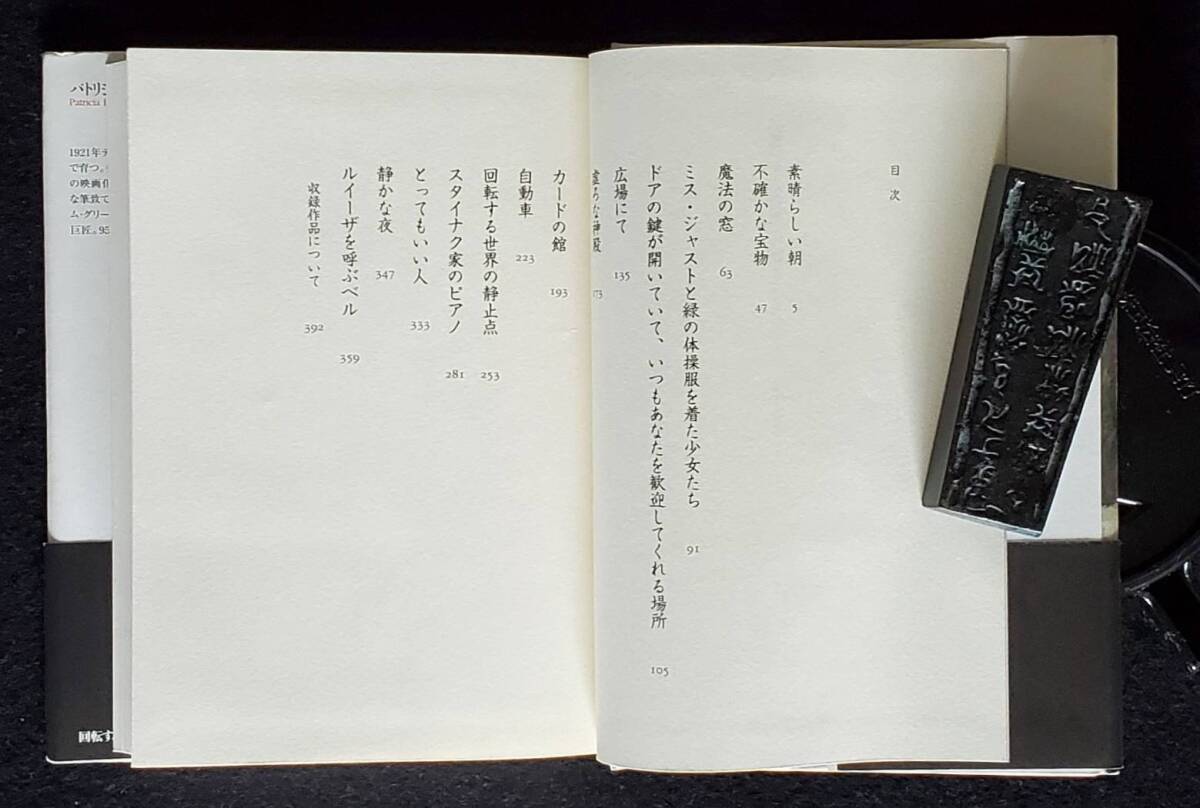 目次
素晴らしい朝 5
不確かな宝物 47
魔法の窓 63
ミス・ジャストと緑の体操服を着た少女たち 91
ドアの鍵が開いていて、いつもあなたを歓迎してくれる場所 105
広場にて 135
虚ろな神殿 173
カードの館 193
自動車 223
回転する世界の静止点 253
スタイナク家のピアノ 281
とってもいい人 333
静かな夜 347
ルイーザを呼ぶベル 359
収録作品について 392
パトリシ
Patricia
1921年テ
で育つ。
の映画化
な筆致て
ム・グリー
巨匠。95
回転す